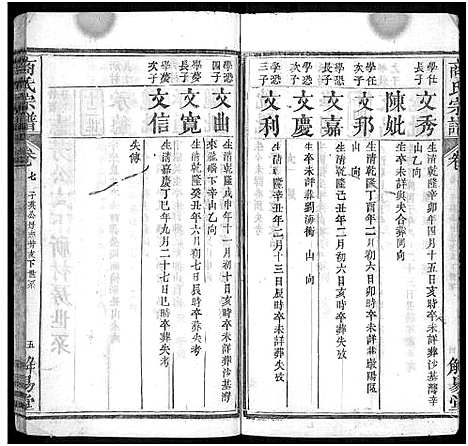 商氏宗譜
卷
解易堂
學任長子
文秀
生清乾隆辛卯年四月十五日亥時卒未詳葬沙基灣辛
山乙向
陳妣
生卒未詳與夫合葬同向
學任次子
文邦
生清乾隆丁酉年二月初六日亥時卒未詳葬墩陽區
學恐長子
文嘉
生清乾隆己丑年二月初六日亥時卒未詳葬失攷
學恐次子
文慶
生卒未詳葬劉海衝 山 向
學恐三子
文利
生清乾隆辛丑年二月十三日辰時卒未詳葬失攷
學恐四子
文曲
生清乾隆戊申年十一月初十日亥時卒未詳葬沙基灣
辛山乙向
學麥長子
文寬
生清乾隆癸丑年六月初七日辰時卒葬失考
學麥次子
文信
生清嘉慶丁巳年九月二十七日巳時卒葬失考
失傳
商氏宗譜
卷七
五
解易堂